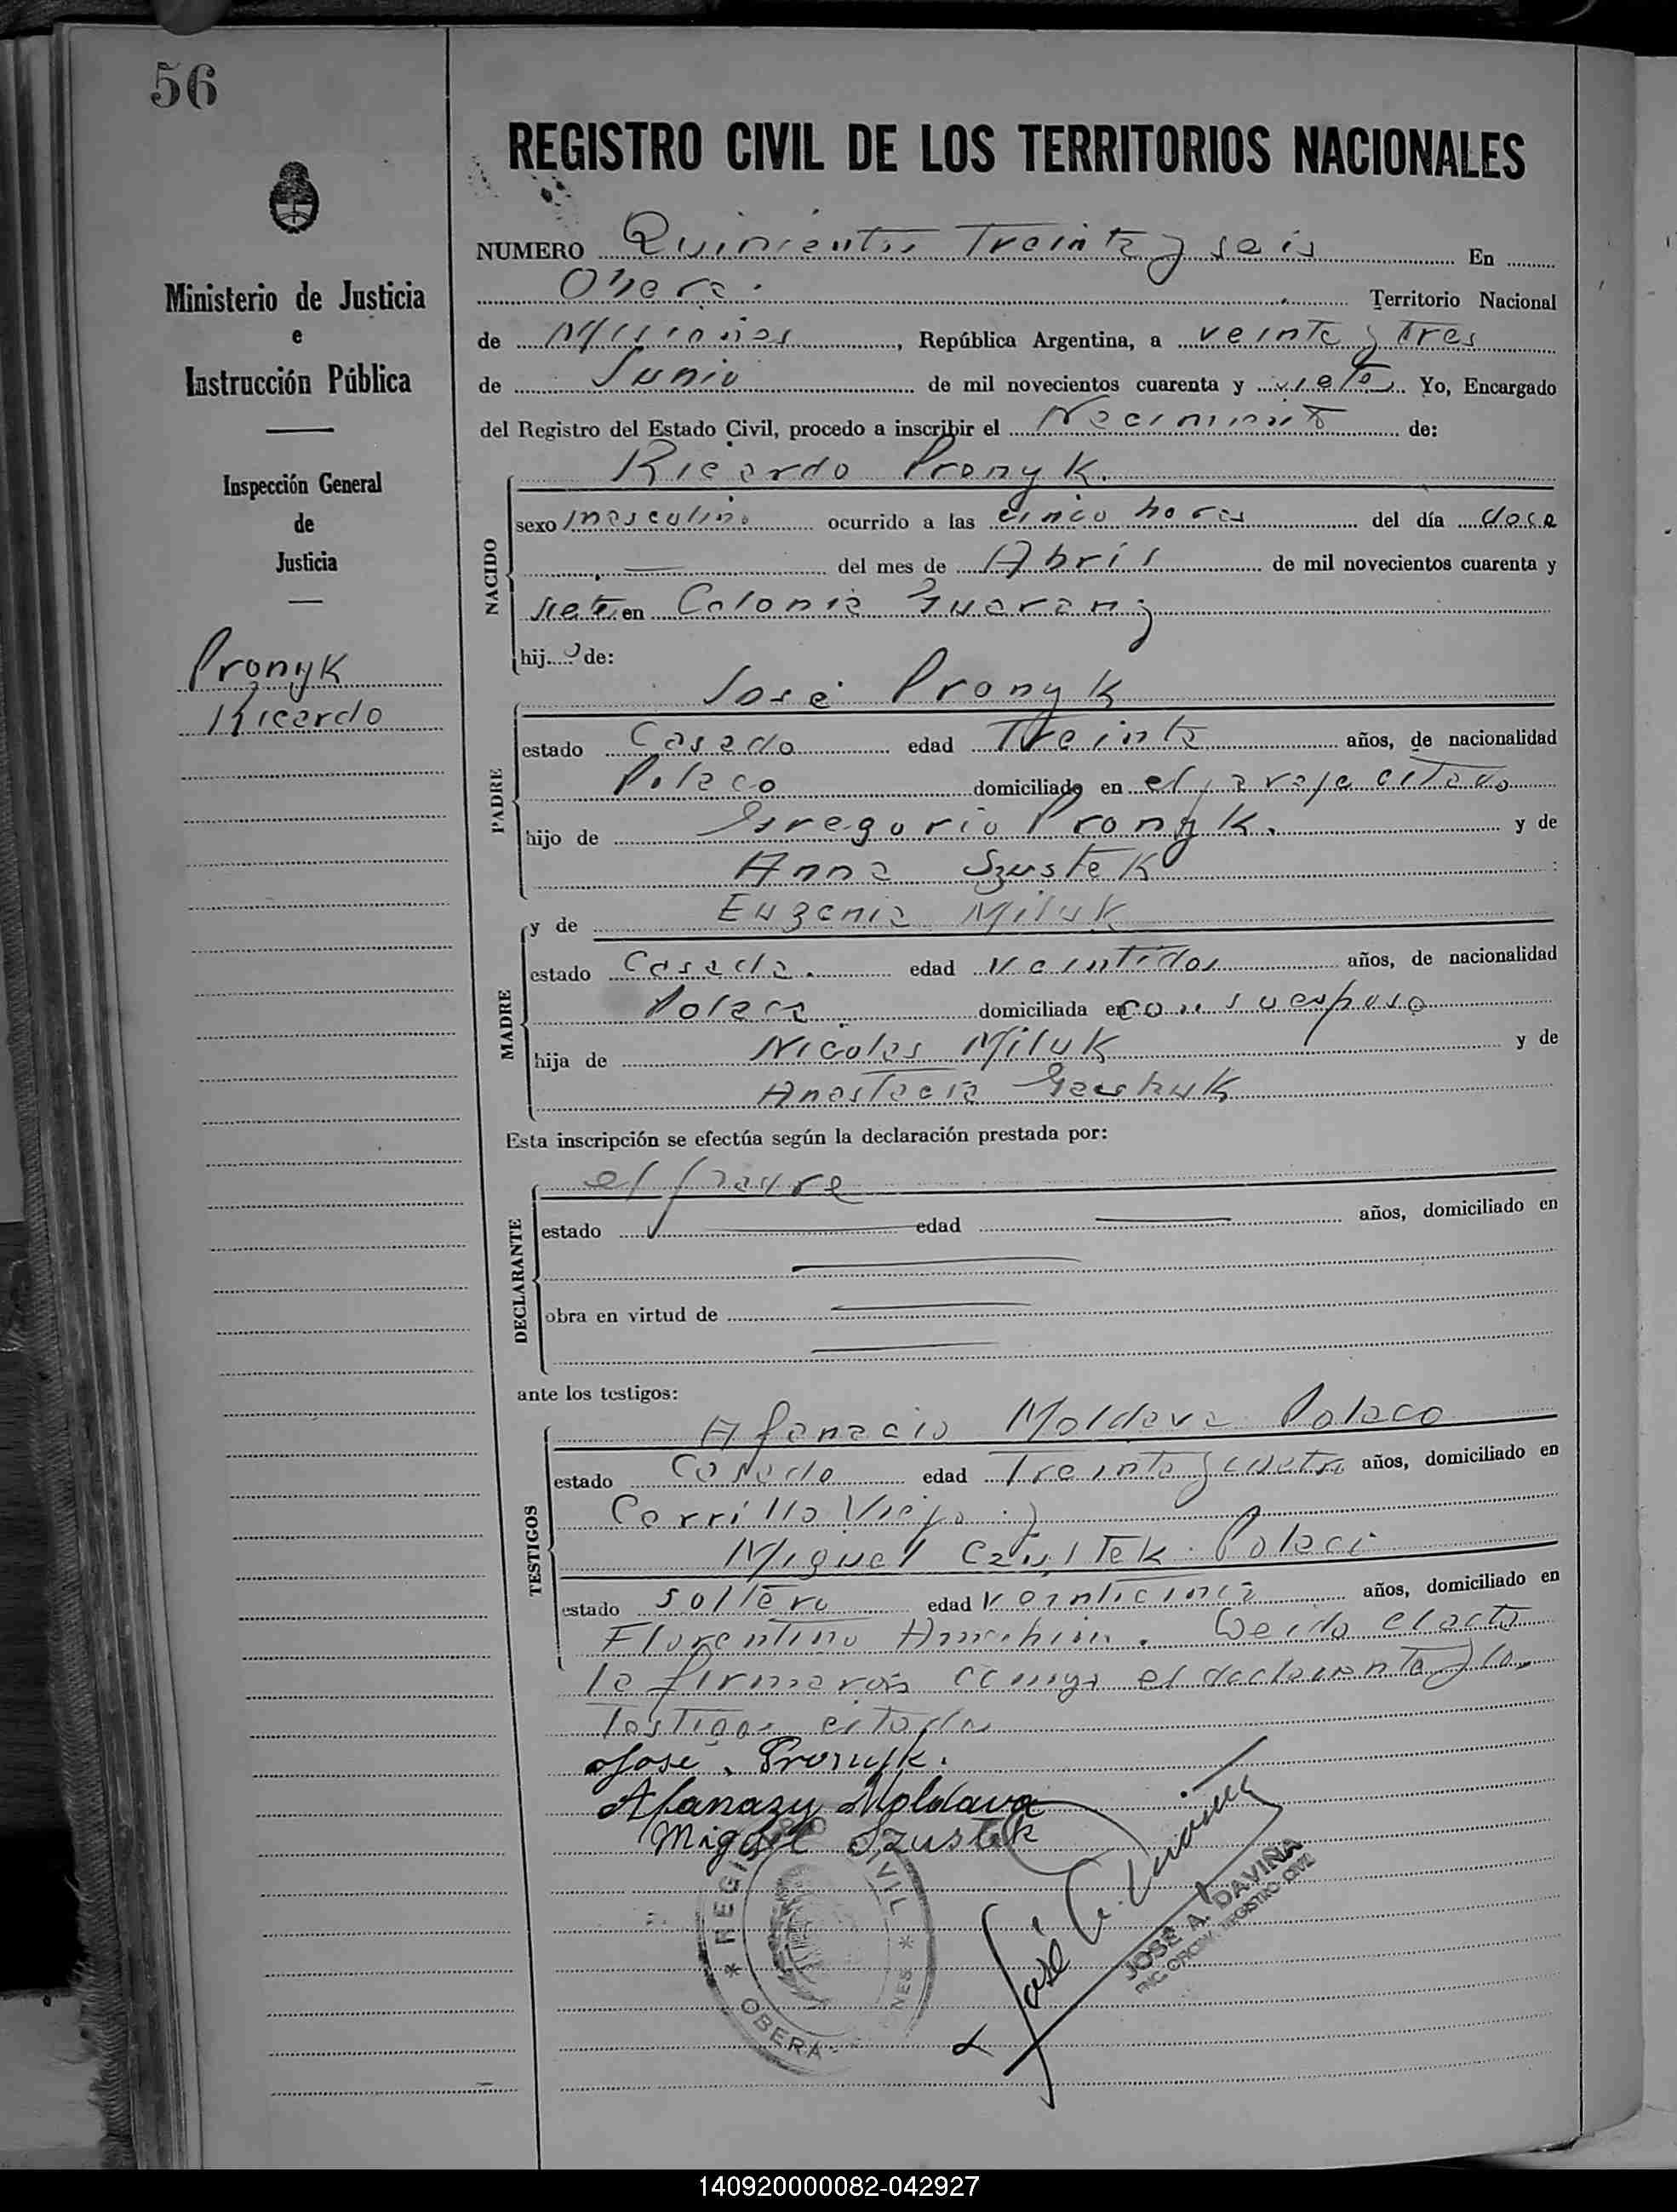 56
REGISTRO CIVIL DE LOS TERRITORIOS NACIONALES
Ministerio de Justicia
e
Instrucción Pública
Inspección General
de
Justicia
Pronyk
Ricardo
NUMERO Quinientos Treinta y seis En
Oberá Territorio Nacional
de Misiones, República Argentina, a veinte y Tres
de Junio de mil novecientos cuarenta y siete Yo, Encargado
del Registro del Estado Civil, procedo a inscribir el Nacimiento de:
Ricardo Pronyk.
NACIDO
sexo masculino ocurrido a las cinco horas del día doce
del mes de Abril de mil novecientos cuarenta y
siete en Colonia Guarany
hijo de:
José Pronyk
PADRE
estado Casado edad Treinta años, de nacionalidad
Polaco domiciliado en el paraje citado
hijo de Gregorio Pronyk. y de
Anna Szustek
MADRE
y de Eugenia Miluk
estado Casada. edad veintidos años, de nacionalidad
Polaca domiciliada en con su esposo
hija de Nicolas Miluk y de
Anastacia
Esta inscripción se efectúa según la declaración prestada por:
DECLARANTE
el padre
estado edad años, domiciliado en
obra en virtud de
ante los testigos:
TESTIGOS
Afanacio Moldava Polaco
estado Casado edad Treinta y cuatro años, domiciliado en
Cerrillo Viejo y
Miguel Czustek Polaco
estado soltero edad veinticinco años, domiciliado en
Florentino Leida el acta
la firmaron conmigo el declarante y los
Testigos citados
José Pronyk.
Afanazy Moldava
Miguel Szustek
REGISTRO CIVIL
OBERA
José A. Daviña
JOSÉ A. DAVIÑA
ENC. OFICINA REGISTRO CIVIL
140920000082-042927